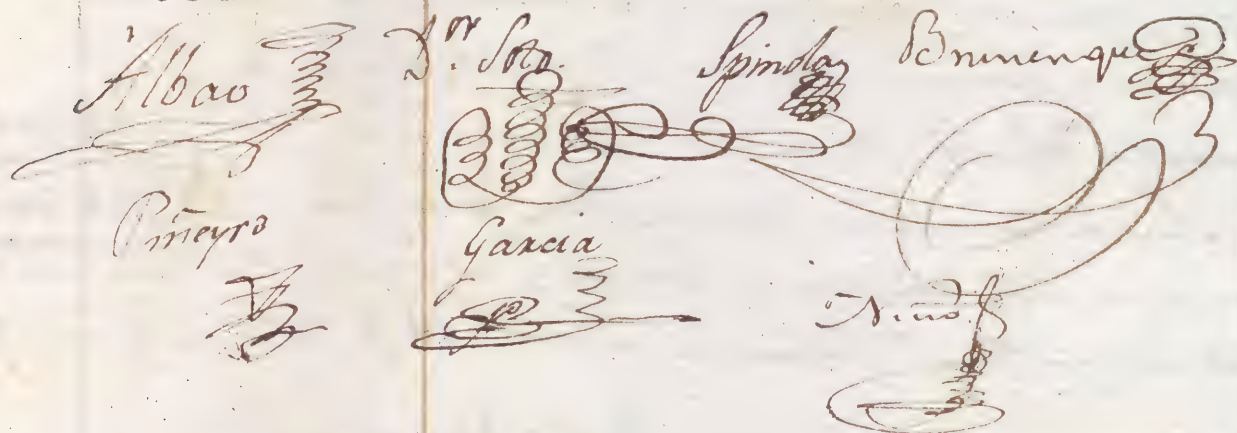 Albao D.ʳ Soto. Spinola Brunenque
Piñeyro Garcia Niño